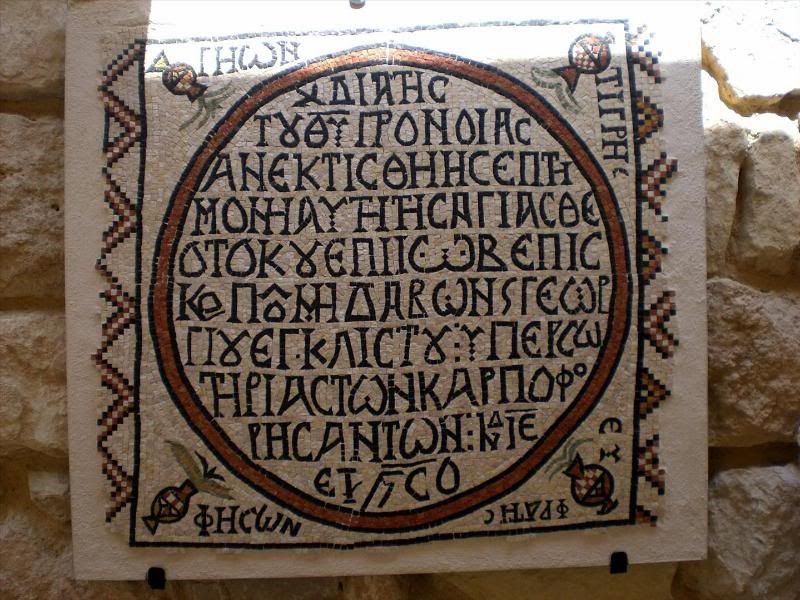 ΓΗΩΝ
ΤΙΓΡΗϹ
ΧΔΙΑΤΗϹ
ΤȢΘΥΠΡΟΝΟΙΑϹ
ΑΝΕΚΤΙϹΘΗΗϹΕΠΤΗ
ΜΟΝΗΑΥΤΗΤΗϹΑΓΙΑϹΘΕ
ΟΤΟΚȢΕΠΙΙϹѠΒΕΠΙϹ
ΚΟΠȢΜΗΔΑΒѠΝϚΓΕѠΡ
ΓΙȢΕΓ·ΚΛΙϹΤȢ:ΥΠΕΡϹѠ
ΤΗΡΙΑϹΤѠΝΚΑΡΠΟΦΟ
ΡΗϹΑΝΤѠΝ:ΙΝΔΙΕ
ΕΤ ϚϹΟ
ΦΗϹѠΝ
ΕΥ
ΦΡΑΤΗϹ